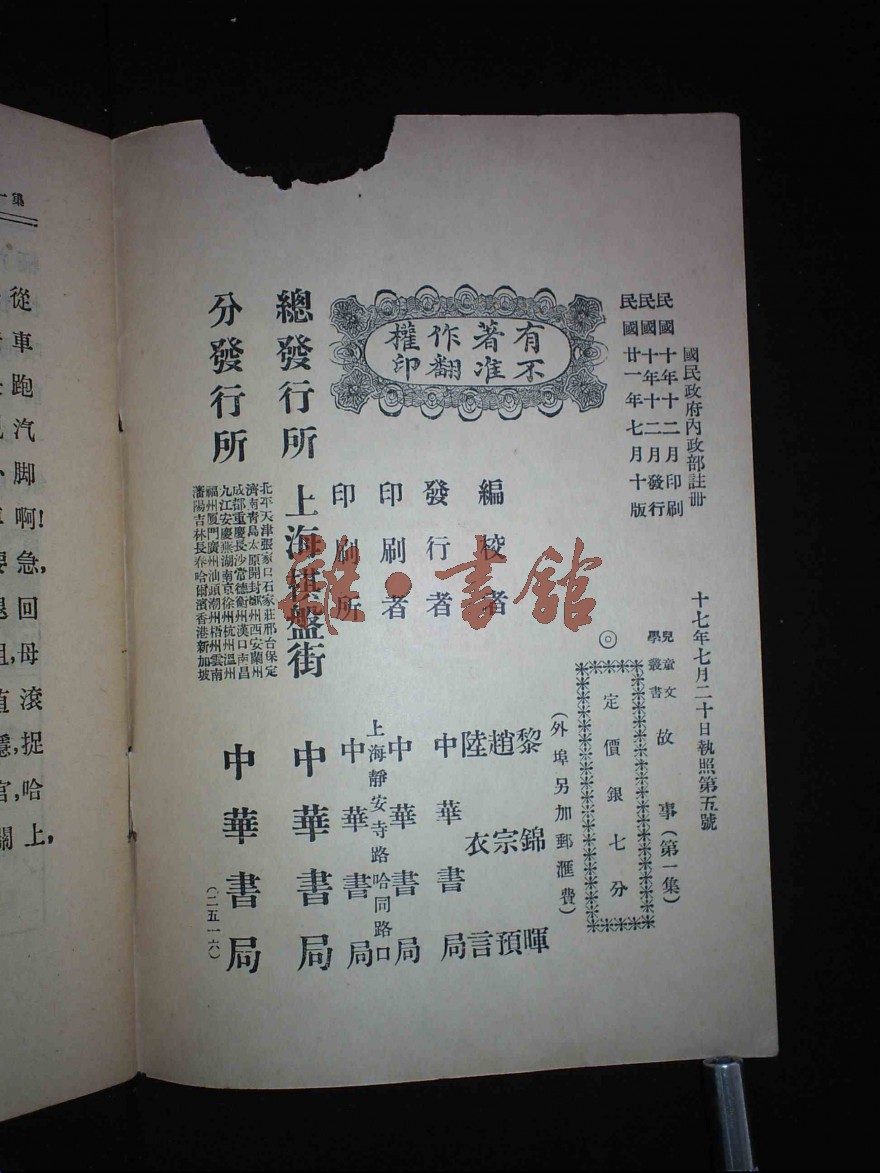 國民政府內政部註冊
十七年七月二十日執照第五號
民國十年十二月印刷
民國十年十二月發行
民國廿一年七月十版
兒童文學叢書
故事(第一集)
◎
定價銀七分
(外埠另加郵匯費)
有著作權
不准翻印
編校者
黎錦暉
趙宗預
陸衣言
發行者
中華書局
印刷者
中華書局
印刷所
上海靜安寺路哈同路口
中華書局
總發行所
上海棋盤街
中華書局
分發行所
北平天津張家口石家莊邢台保定
濟南青島太原開封鄭州西安蘭州
成都重慶長沙常德衡州漢口南昌
九江安慶蕪湖南京徐州杭州溫州
福州廈門廣州汕頭潮州梧州雲南
瀋陽吉林長春哈爾濱香港新加坡
中華書局
(二五一六)
雜·書館
集
從車跑汽脚啊!
急,回母滾捉哈上,